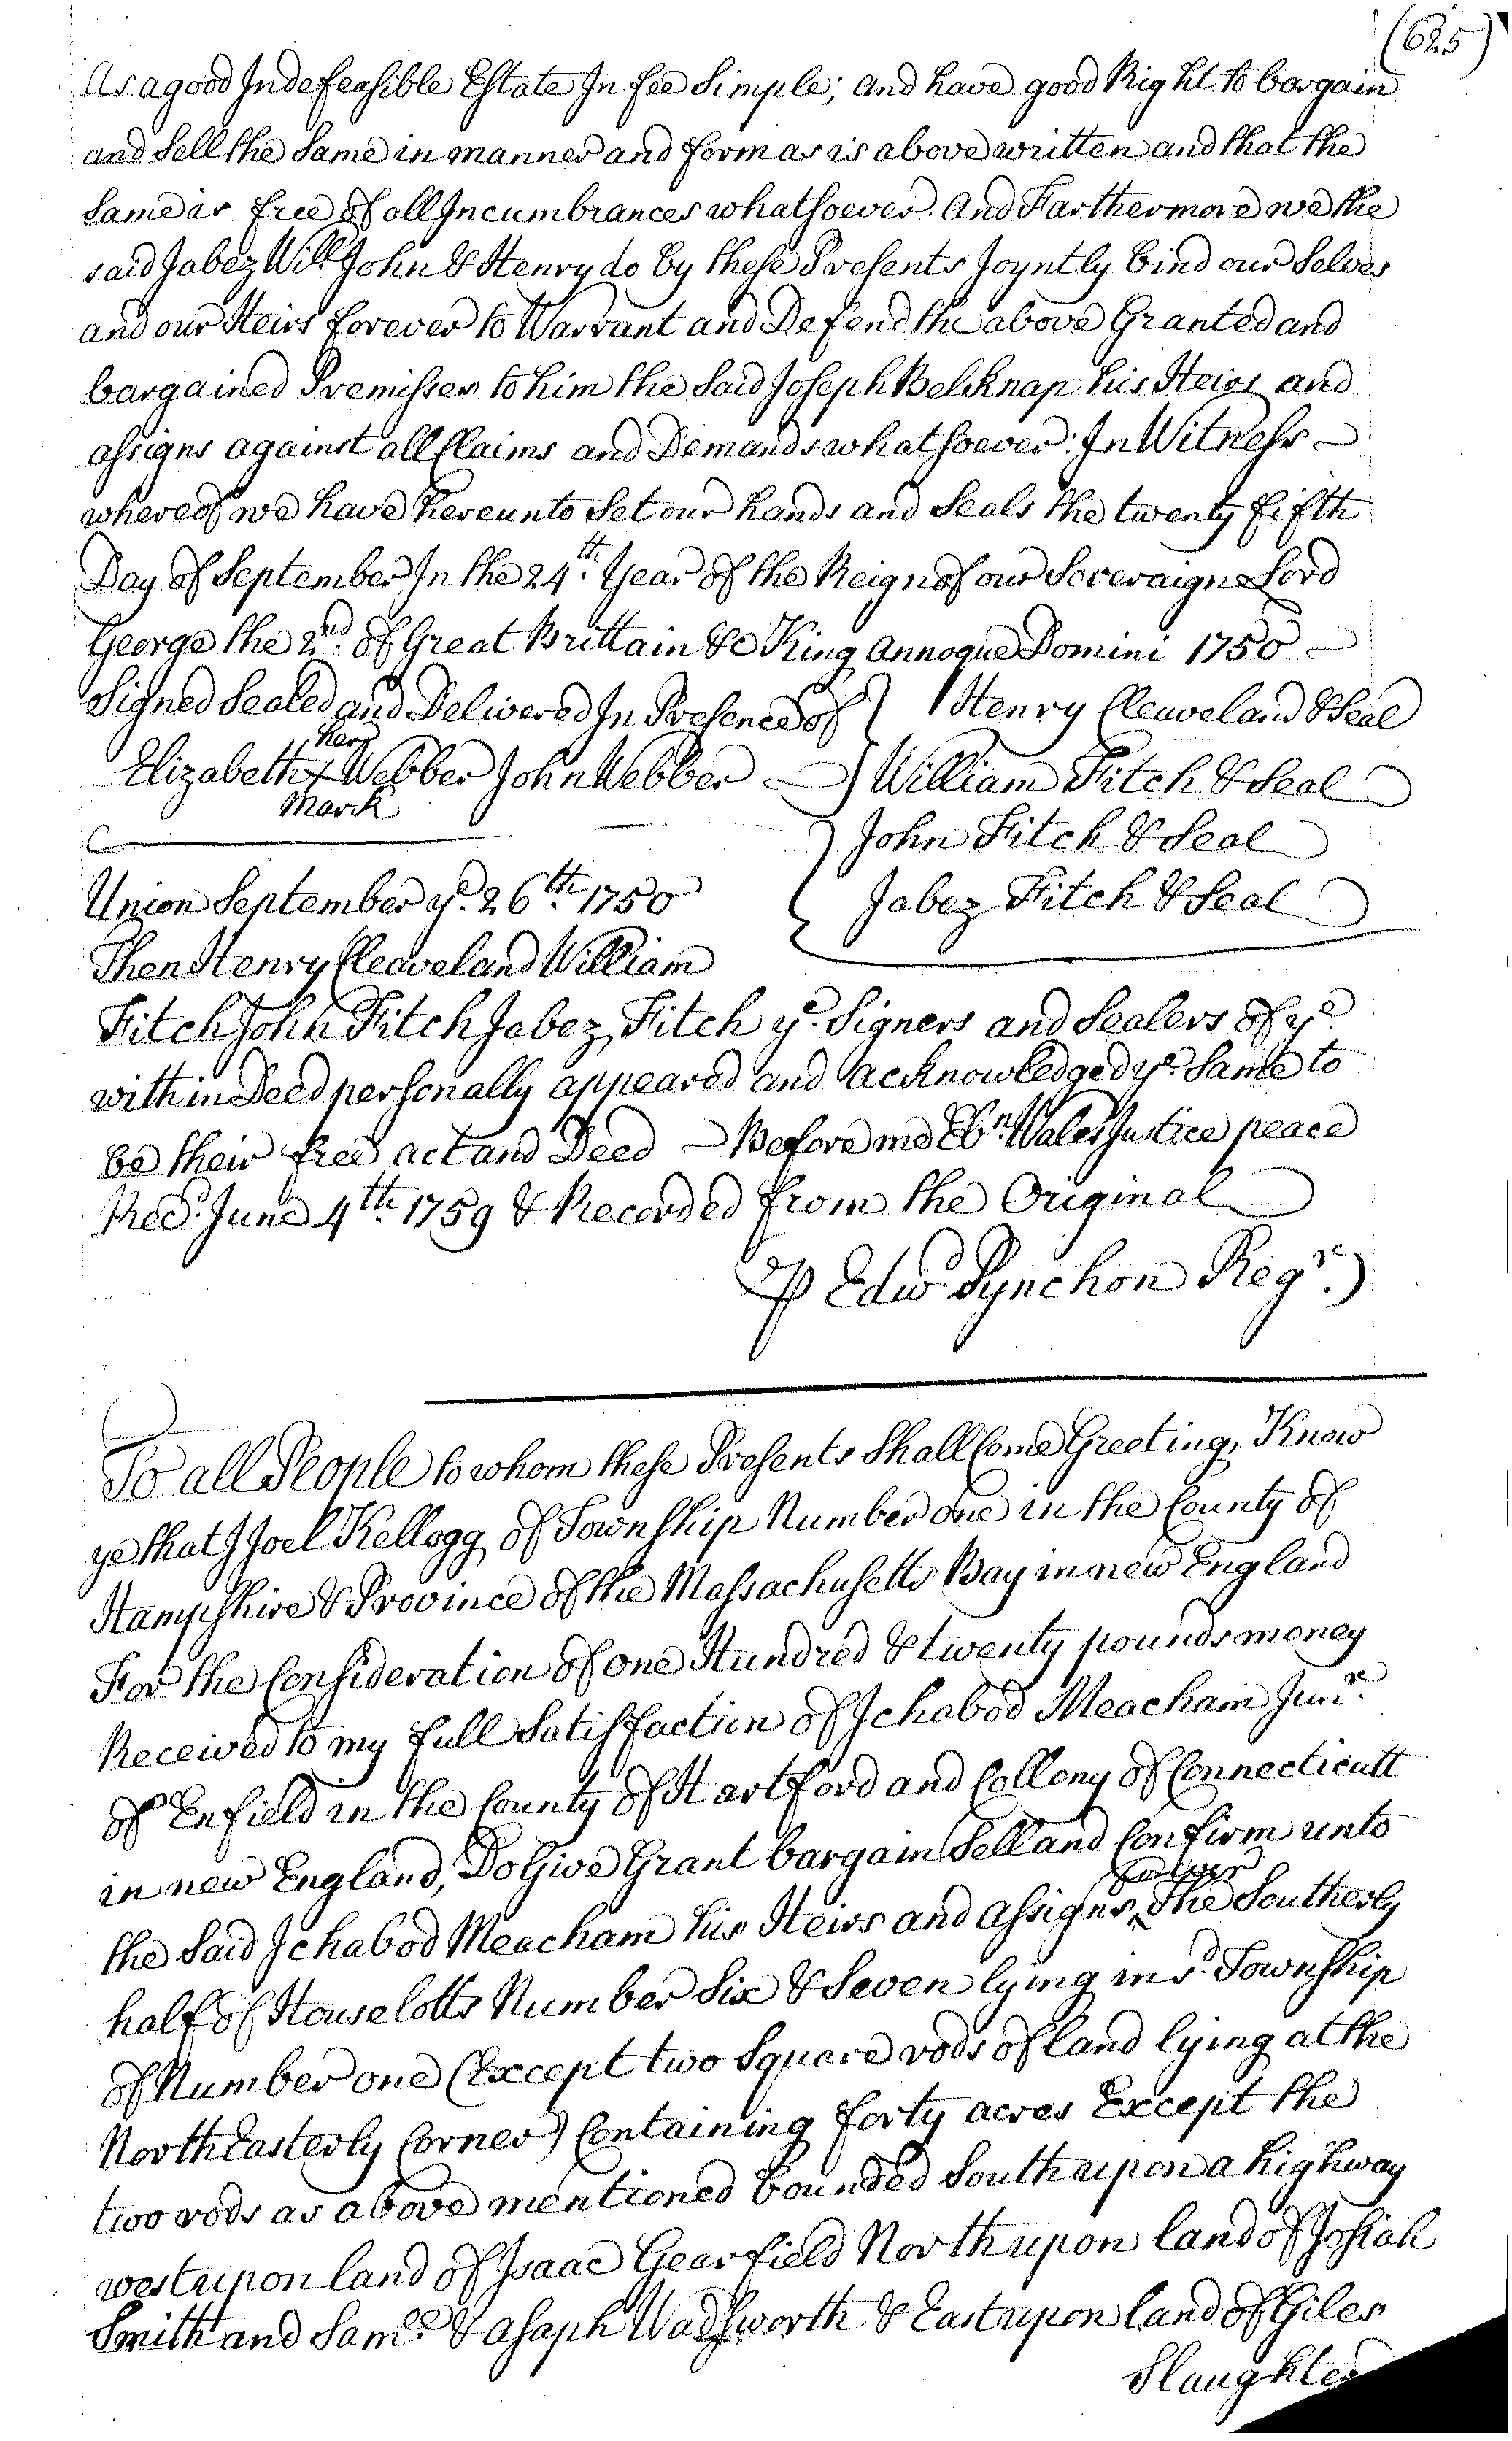 (625)
As a good Indefeasible Estate In fee Simple; and have good Right to bargain
and Sell the Same in manner and form as is above written and that the
Same is free of all Incumbrances whatsoever. And Farthermore we the
said Jabez Willm. John & Henry do by these Presents Joyntly bind our Selves
and our Heirs forever to Warrant and Defend the above Granted and
bargained Premisses to him the Said Joseph Belknap his Heirs and
assigns against all Claims and Demands whatsoever: In Witness
whereof we have hereunto Set our hands and Seals the twenty fifth
Day of September In the 24th. Year of the Reign of our Soveraigne Lord
George the 2nd. of Great Brittain &c King Annoque Domini 1750
Signed Sealed and Delivered In Presence of } Henry Cleaveland & Seal
her
Elizabeth x Webber John Webber } William Fitch & Seal
mark
John Fitch & Seal
Union September ye. 26th. 1750 Jabez Fitch & Seal
Then Henry Cleaveland William
Fitch John Fitch Jabez Fitch ye. Signers and Sealers of ye.
within Deed personally appeared and acknowledged ye. Same to
be their free act and Deed - Before me Ebnr. Wales Justice peace
Recd. June 4th. 1759 & Recorded from the Original
P Edwd. Pynchon Regr.)
To all People to whom these Presents Shall Come Greeting, Know
ye that I Joel Kellogg of Township Number one in the County of
Hampshire & Province of the Massachusetts Bay in new England
For the Consideration of one Hundred & twenty pounds money
Received to my full Satisfaction of Ichabod Meacham Junr.
of Enfield in the County of Hartford and Collony of Connecticutt
in new England, Do Give Grant bargain Sell and Confirm unto
the Said Ichabod Meacham his Heirs and Assigns ^ forever The Southerly
half of House lotts Number Six & Seven lying in sd. Township
of Number one (Except two Square rods of land lying at the
North Easterly Corner) Containing forty acres Except the
two rods as above mentioned bounded South upon a highway
west upon land of Isaac Gearfield North upon land of Josiah
Smith and Samll. & Asaph Wadsworth & East upon land of Giles
Slaughter